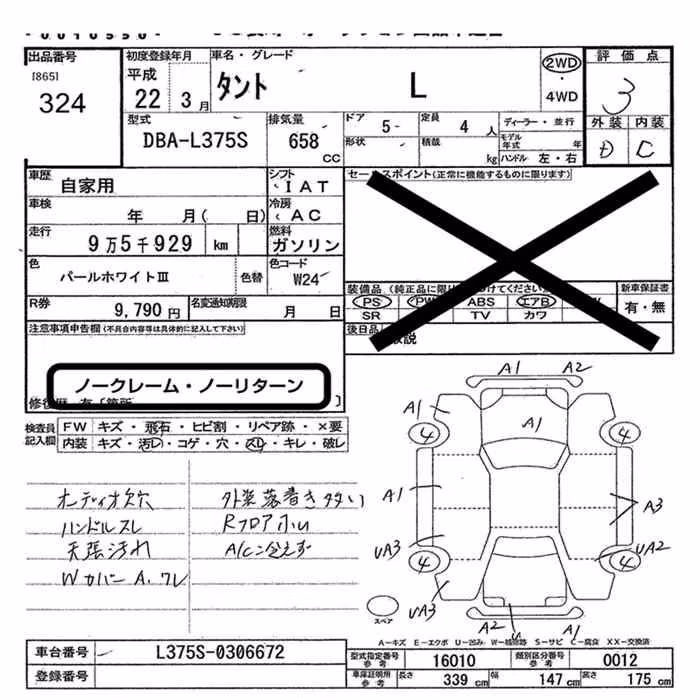 出品番号
[865]
324
初度登録年月
平成
22 3月
車名・グレード
タント L
2WD
・
4WD
評価点
3
外装 内装
D C
型式
DBA-L375S
排気量
658 cc
ドア 5 -
定員 4 人
形状
積載 kg
ディーラー・並行
モデル年式 年
ハンドル 左・右
車歴 自家用
シフト IAT
車検 年 月( 日)
冷房 AC
走行 9万5千929 km
燃料 ガソリン
色 パールホワイトIII 色替
色コード W24
R券 9,790円
名変通知期限 月 日
セールスポイント(正常に機能するものに限ります)
装備品
PS PW ABS エアB
SR TV カワ
新車保証書
有・無
後日品
注意事項申告欄(不具合内容等は具体的に記入して下さい)
ノークレーム・ノーリターン
検査員記入欄
FW キズ・飛石・ヒビ割・リペア跡・×要
内装 キズ・汚レ・コゲ・穴・スレ・キレ・破レ
オーディオ欠穴
ハンドルスレ
天張汚れ
Wカバー A. ワレ
外装落書き多い
Rフロアホル
A/C冷えず
A1 A2
A1 A1
4 4
A1 A3
UA3 UA2
4 4
UA3
A2 A1
スペア
A-キズ E-エクボ U-凹み W-補修跡 S-サビ C-腐食 XX-交換済
車台番号 L375S-0306672
登録番号
型式指定番号 参考 16010
類別区分番号 参考 0012
車庫証明用 参考 長さ 339 cm 幅 147 cm 高さ 175 cm